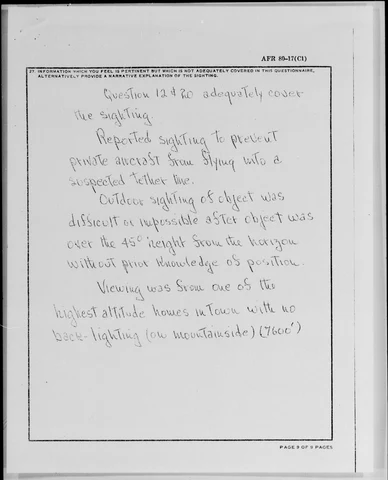 AFR 80-17(C1)
27. INFORMATION WHICH YOU FEEL IS PERTINENT BUT WHICH IS NOT ADEQUATELY COVERED IN THIS QUESTIONNAIRE,
ALTERNATIVELY PROVIDE A NARRATIVE EXPLANATION OF THE SIGHTING.
Question 12 & 20 adequately cover
the sighting.
Reported sighting to prevent
private aircraft from flying into a
suspected tether line.
Outdoor sighting of object was
difficult or impossible after object was
over the 45° height from the horizon
without prior knowledge of position.
Viewing was from one of the
highest altitude homes in town with no
back-lighting (on mountainside) (7600')
PAGE 9 OF 9 PAGES